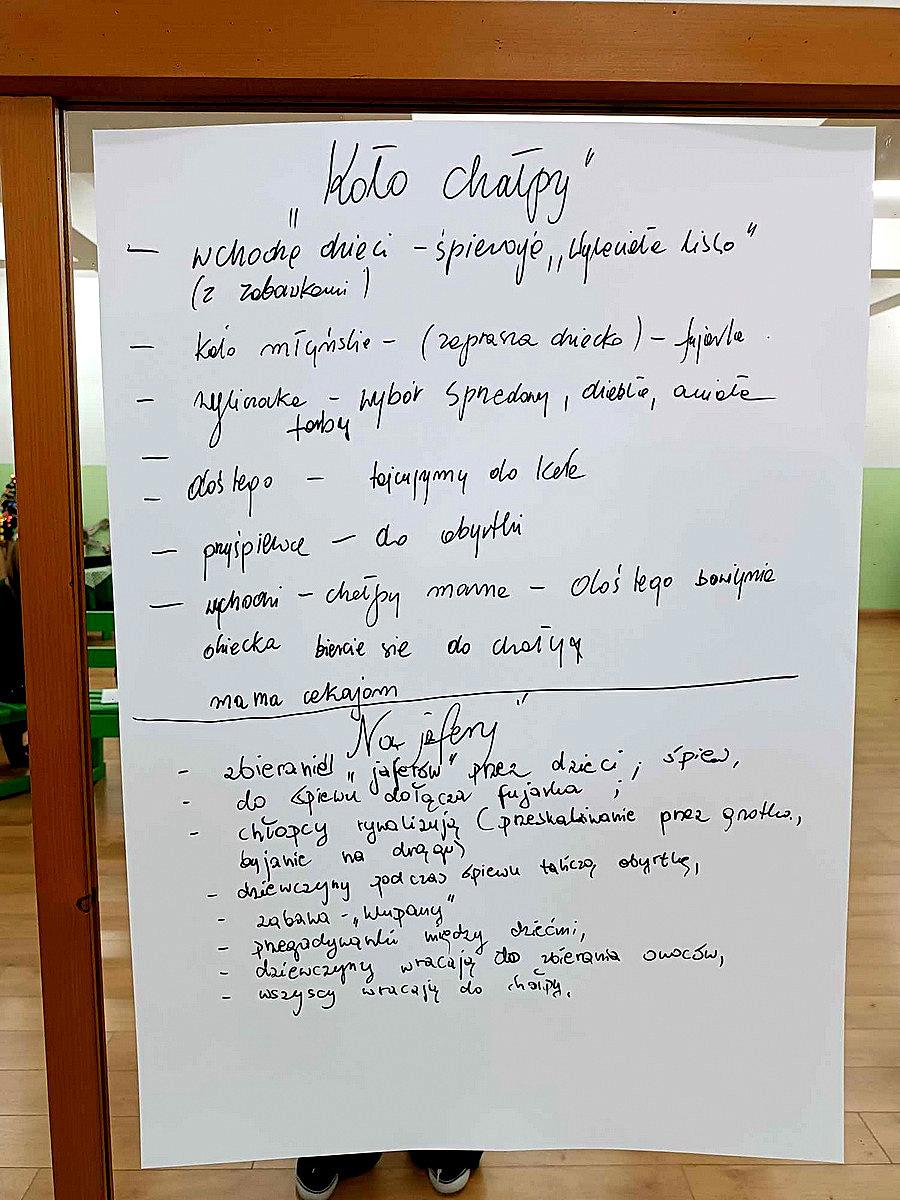 „Koło chałpy"
— wchodzę dzieci – śpiewoję „Wyleciało lisko"
(z zabawkami)
— koło młyńskie – (zaprasza dziecko) – fujarka
— wyliczanka – wybór sprzedawy, diabła, anioła
farby
—
— dość tego – tańcujymy do koła
— przyśpiewce – do obyrtki
— wchodzi – chałpy mama – dość tego
dziecka biercie sie do chałpy
mama cekajom
„Na jafery"
- zbieranie „jaferów" przez dzieci, śpiew,
- do śpiewu dołącza fujarka ;
- chłopcy rywalizują (przeskakiwanie przez gnotka,
byjanie na drągu)
- dziewczyny podczas śpiewu tańczą obyrtkę,
- zabawa - „Wupany"
- przegadywanki między dziećmi,
- dziewczyny wracają do zbierania owoców,
- wszyscy wracają do chałpy.